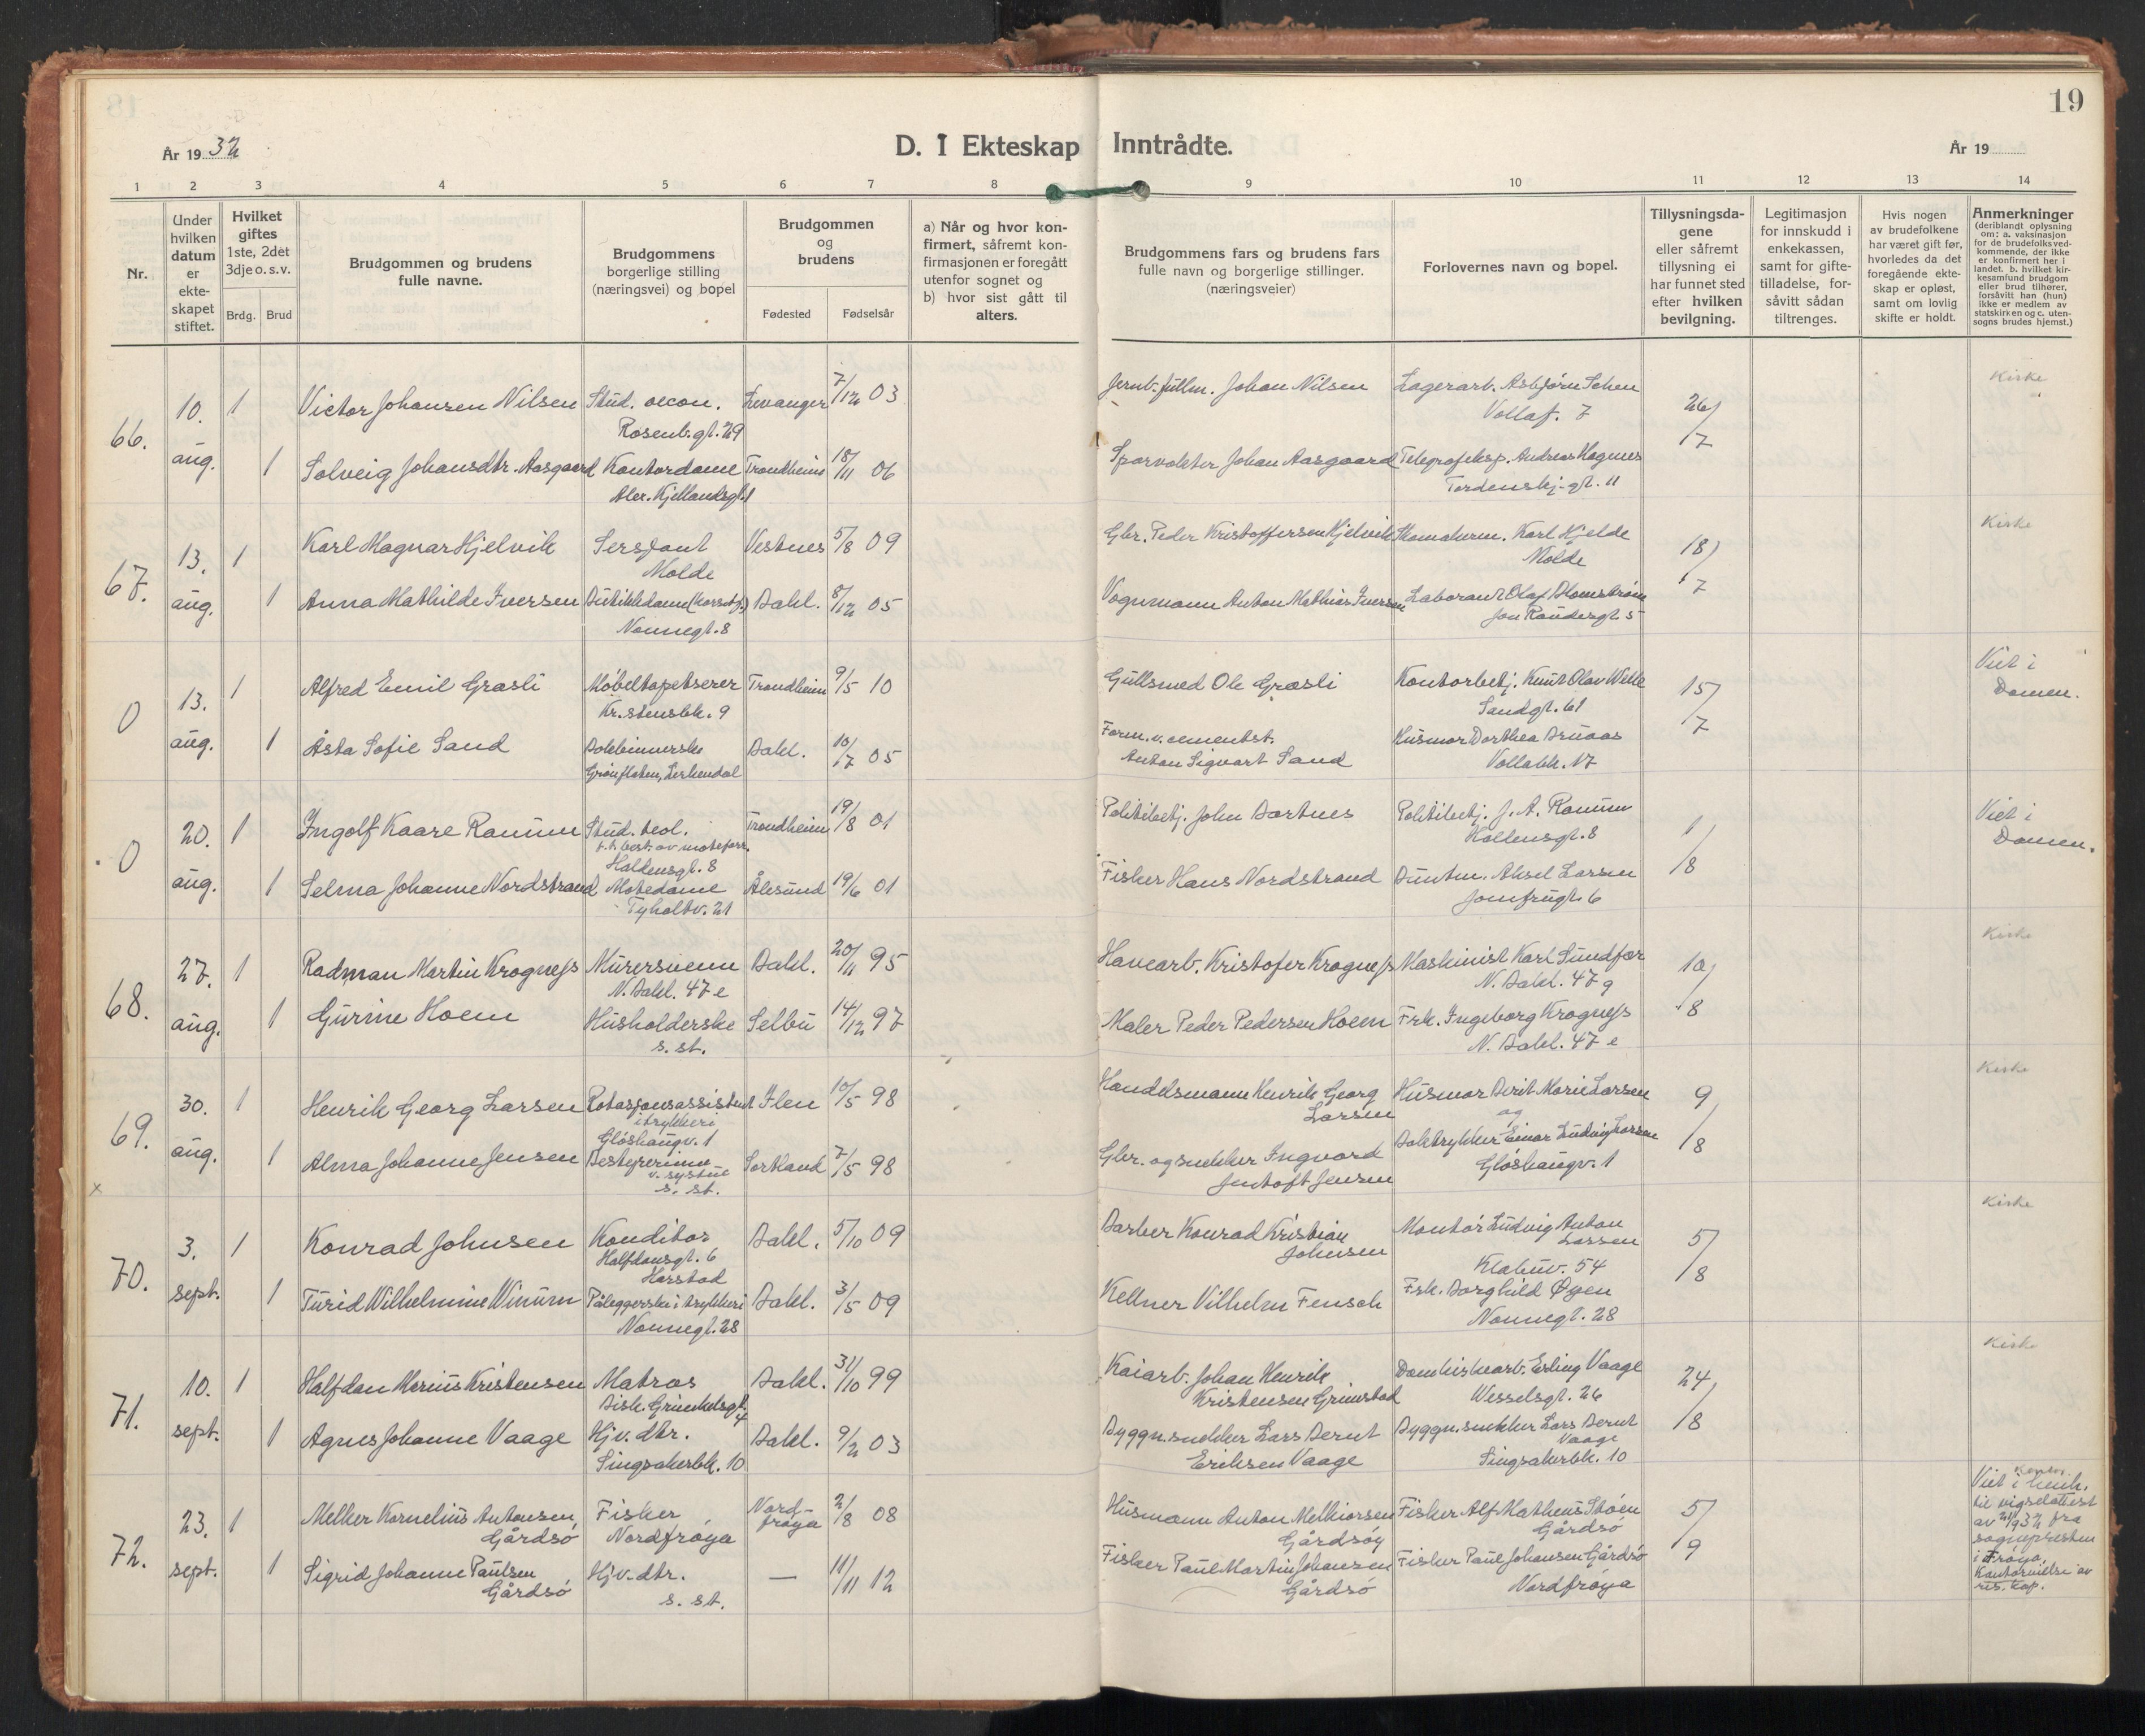 19
År 19 32
D. I Ekteskap Inntrådte.
År 19
1 2 3 4 5 6 7 8 9 10 11 12 13 14
Nr.
Under hvilken datum er ekteskapet stiftet.
Hvilket giftes 1ste, 2det 3dje o. s. v.
Brdg. Brud
Brudgommen og brudens fulle navne.
Brudgommens borgerlige stilling (næringsvei) og bopel
Brudgommen og brudens
Fødested Fødselsår
a) Når og hvor konfirmert, såfremt konfirmasjonen er foregått utenfor sognet og
b) hvor sist gått til alters.
Brudgommens fars og brudens fars fulle navn og borgerlige stillinger. (næringsveier)
Forlovernes navn og bopel.
Tillysningsdagene eller såfremt tillysning ei har funnet sted efter hvilken bevilgning.
Legitimasjon for innskudd i enkekassen, samt for giftetilladelse, forsåvitt sådan tiltrenges.
Hvis nogen av brudefolkene har været gift før, hvorledes da det foregående ekteskap er opløst, samt om lovlig skifte er holdt.
Anmerkninger (deriblandt oplysning om: a. vaksinasjon for de brudefolks vedkommende, der ikke er konfirmert her i landet. b. hvilket kirkesamfund brudgom eller brud tilhører, forsåvitt han (hun) ikke er medlem av statskirken og c. utensogns brudes hjemst.)
66. 10. aug. 1 Victor Johansen Nilsen Stud. oecon. Rosenb.gt. 29 Levanger 7/12 03 Jernb.fullm. Johan Nilsen Lagerarb. Asbjørn Schen Vollaf. 7 26/7 Kirke
1 Solveig Johansdtr. Aasgaard Kontordame Alex. Kjellandsgt. 1 Trondheim 18/11 06 Sporvokter Johan Aasgaard Telegrafeksp. Andreas Hagnes Tordenskj.gt. 11
67. 13. aug. 1 Karl Magnar Hjelvik Sersjant Molde Vestnes 5/8 09 Gbr. Peder Kristoffersen Hjelvik Skomakerm. Karl Hjelde Molde 18/7 Kirke
1 Anna Mathilde Iversen Butikkdame (korsettf.) Nonnegt. 8 Bakl. 8/12 05 Vognmann Anton Mathias Iversen Laborant Olaf Blomstrøm Jon Raudesgt. 5
0 13. aug. 1 Alfred Emil Græsli Møbeltapetserer Kr.stensbk. 9 Trondheim 9/5 10 Gullsmed Ole Græsli Kontorbetj. Knut Olav Welle Sandgt. 61 15/7 Viet i Domen.
1 Åsta Sofie Sand Bokbinnerske Grønflaten, Lerkendal Bakl. 10/7 05 Form. v. cementst. Anton Sigvart Sand Husmor Dorthea Bruaas Vollabk. 17
0 20. aug. 1 Ingolf Kaare Ranum Stud. teol. f.t. best. av motefarr. Haldensgt. 8 Trondheim 19/8 01 Politibetj. John Bartnes Politibetj. J. A. Ranum Haldensgt. 8 1/8 Viet i Domen.
1 Selma Johanne Nordstrand Motedame Tyholtv. 21 Ålesund 19/6 01 Fisker Hans Nordstrand Buntm. Aksel Larsen Jomfrugt. 6
68. 27. aug. 1 Radman Martin Krogness Murersvenn N. Bakl. 47 e Bakl. 20/11 95 Havearb. Kristofer Krogness Maskinist Karl Sundfær N. Bakl. 47 g 10/8 Kirke
1 Gurine Hoem Husholderske s. st. Selbu 14/12 97 Maler Peder Pedersen Hoem Frk. Ingeborg Krogness N. Bakl. 47 e
69. 30. aug. 1 Henrik Georg Larsen Rotasjonsassistent i trykkeri Gløshaugv. 1 Ilen 10/5 98 Handelsmann Henrik Georg Larsen Husmor Berit Marie Larsen og 9/8 Kirke
1 Alma Johanne Jensen Bestyrerinne v. systue s. st. Sortland 7/5 98 Gbr. og snekker Ingvard Jentoft Jensen Boktrykker Einar Ludvig Larsen Gløshaugv. 1
x
70. 3. sept. 1 Konrad Johnsen Konditor Halfdansgt. 6 Harstad Bakl. 5/10 09 Barber Konrad Kristian Johnsen Montør Ludvig Anton Larsen Klæbuv. 54 5/8 Kirke
1 Turid Wilhelmine Winum Påleggerske i trykkeri Nonnegt. 28 Bakl. 3/5 09 Kellner Vilhelm Fensch Frk. Borghild Øyen Nonnegt. 28
71. 10. sept. 1 Halfdan Marius Kristensen Matros Bisk. Grimkelsgt. 4 Bakl. 31/10 99 Kaiarb. Johan Henrik Kristensen Grimstad Domkirkearb. Erling Vaage Wesselsgt. 26 24/8 Kirke
1 Agnes Johanne Vaage Hjv. dtr. Singsakerbk. 10 Bakl. 9/2 03 Byggn.snekker Lars Bernt Eriksen Vaage Byggn.snekker Lars Bernt Vaage Singsakerbk. 10
72. 23. sept. 1 Melker Kornelius Antonsen, Gårdsø Fisker Nordfrøya Nordfrøya 2/8 08 Husmann Anton Melkiorsen Gårdsøy Fisker Alf Matheus Støen Gårdsø 5/9 Viet i henh. til vigselattest av 21/9 32 fra sognepresten i Frøya.
1 Sigrid Johanne Paulsen Gårdsø Hjv. dtr. s. st. — 11/11 12 Fisker Paul Martin Johansen Gårdsø Fisker Paul Johansen Gårdsø Nordfrøya